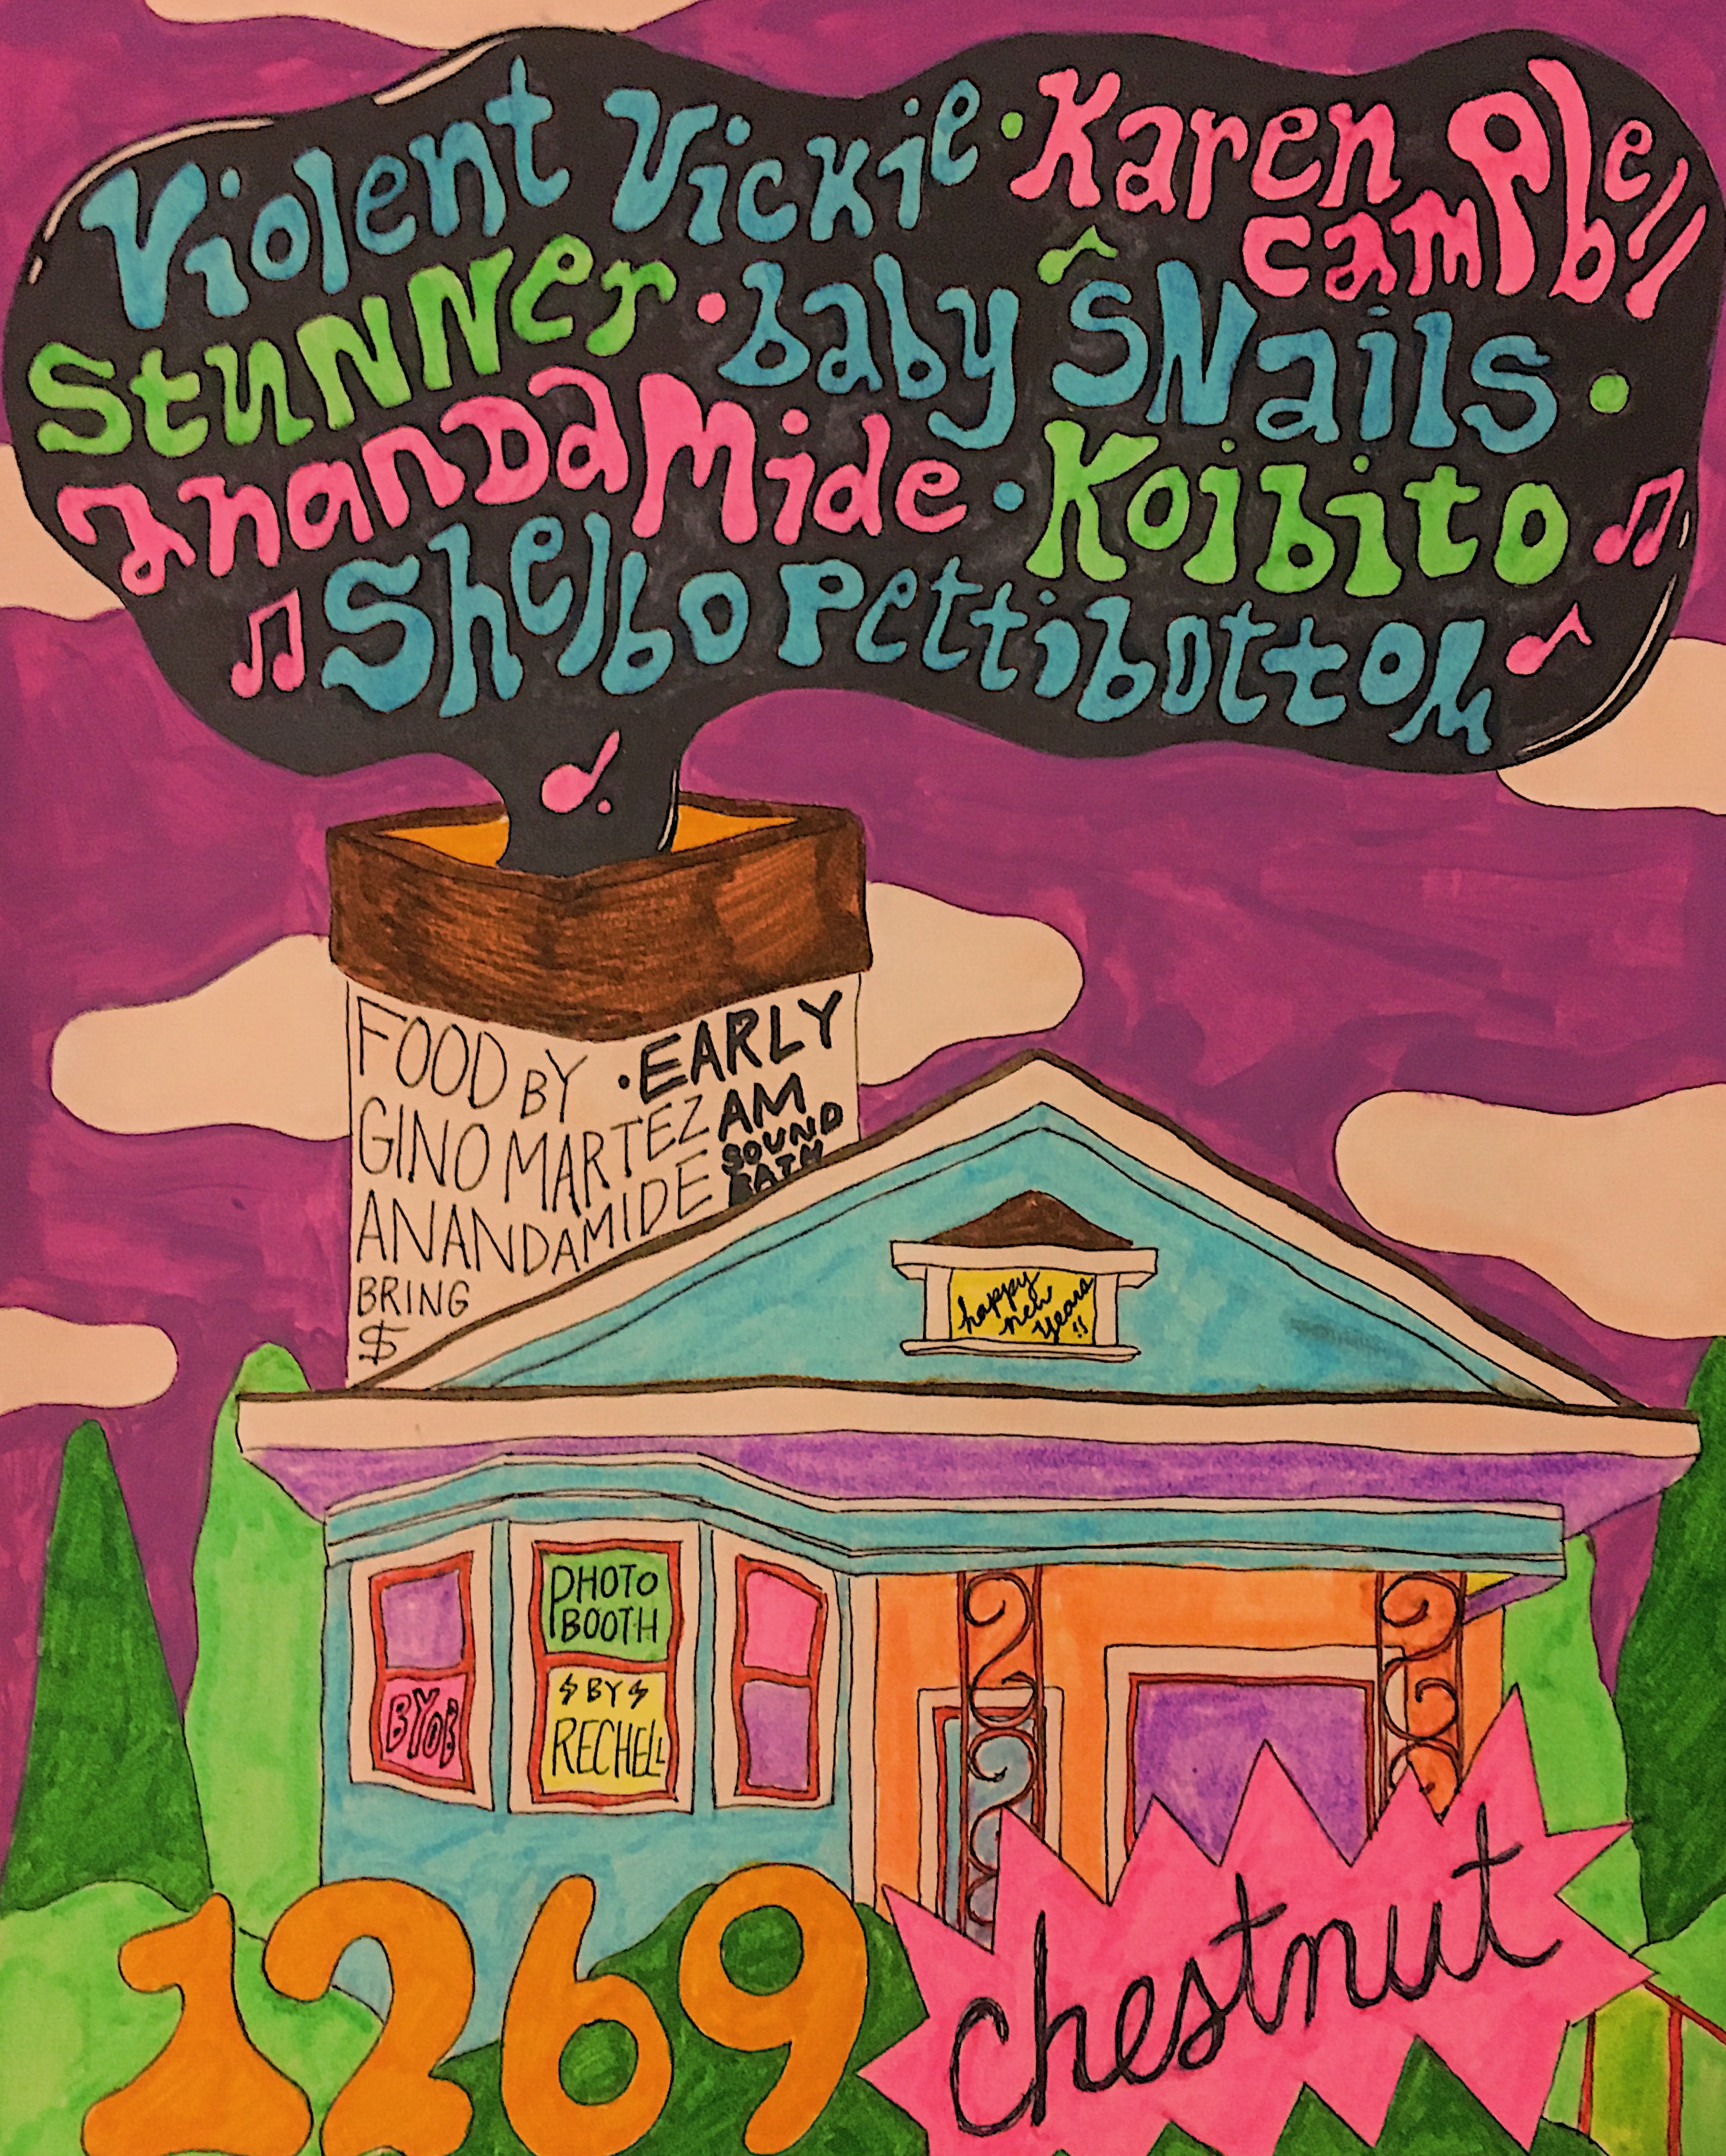 Violent Vickie • Karen Campbell
Stunner • baby Snails •
Anandamide • Koibito
Shelbo Pettibottom
FOOD BY
GINO MARTEZ
ANANDAMIDE
BRING
$
• EARLY
AM
SOUND
BATH
happy
new
years!!
PHOTO
BOOTH
BY
RECHELL
BYOB
1269
chestnut